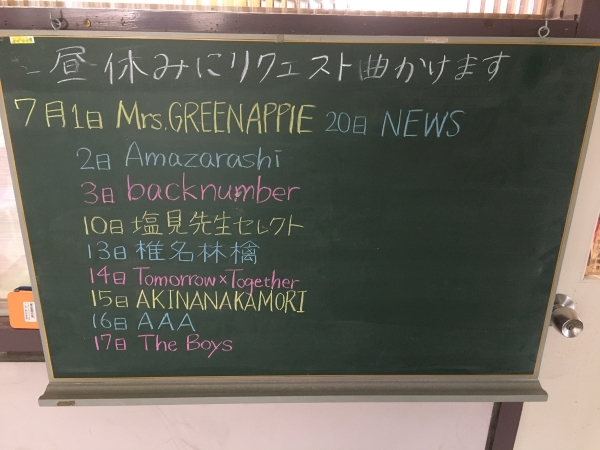 昼休みにリクエスト曲かけます
7月1日 Mrs.GREENAPPIE 20日 NEWS
2日 Amazarashi
3日 backnumber
10日 塩見先生セレクト
13日 椎名林檎
14日 Tomorrow×Together
15日 AKINANAKAMORI
16日 AAA
17日 The Boys